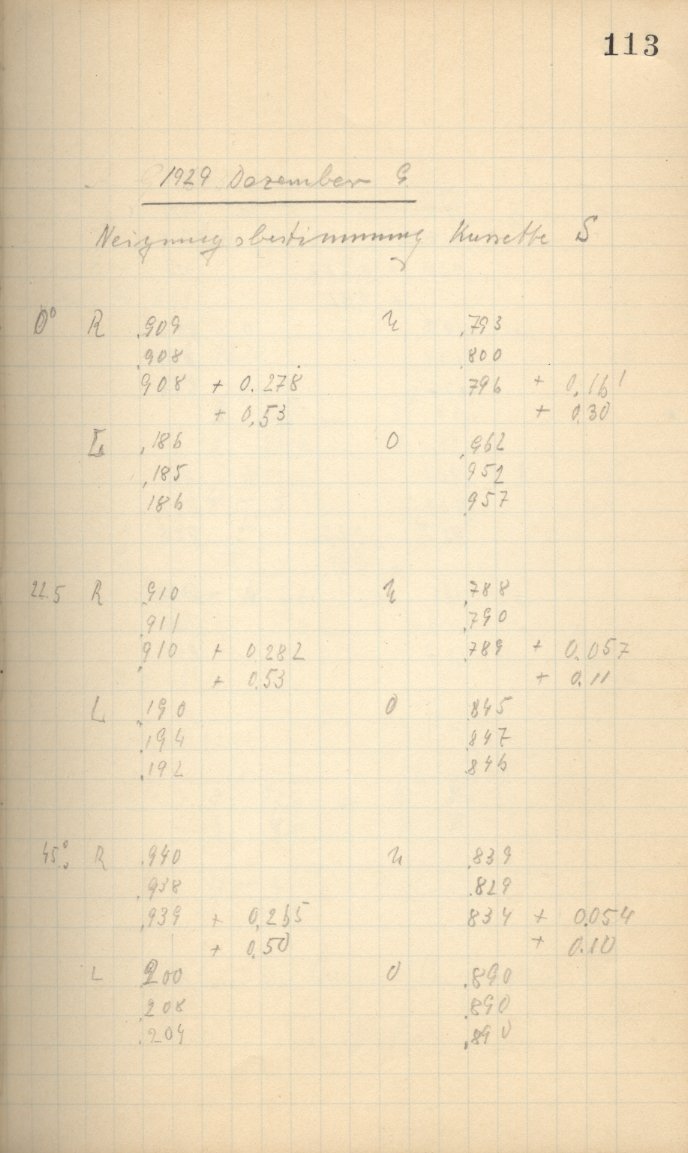 113
1929 Dezember 9
Neigungsbestimmung Kassette S
0° R .909 U .793
.908 .800
908 + 0.278 .796 + 0,161
+ 0,53 + 0,30
L .186 O .962
.185 952
186 .957
22.5 R .910 U .788
.911 .790
.910 + 0.282 .789 + 0.057
+ 0.53 + 0.11
L .190 O .845
.194 .847
.192 .846
45° R .940 U .839
.938 .829
.939 + 0,265 834 + 0.054
+ 0,50 + 0.10
L 200 O .890
.208 .890
.204 .890